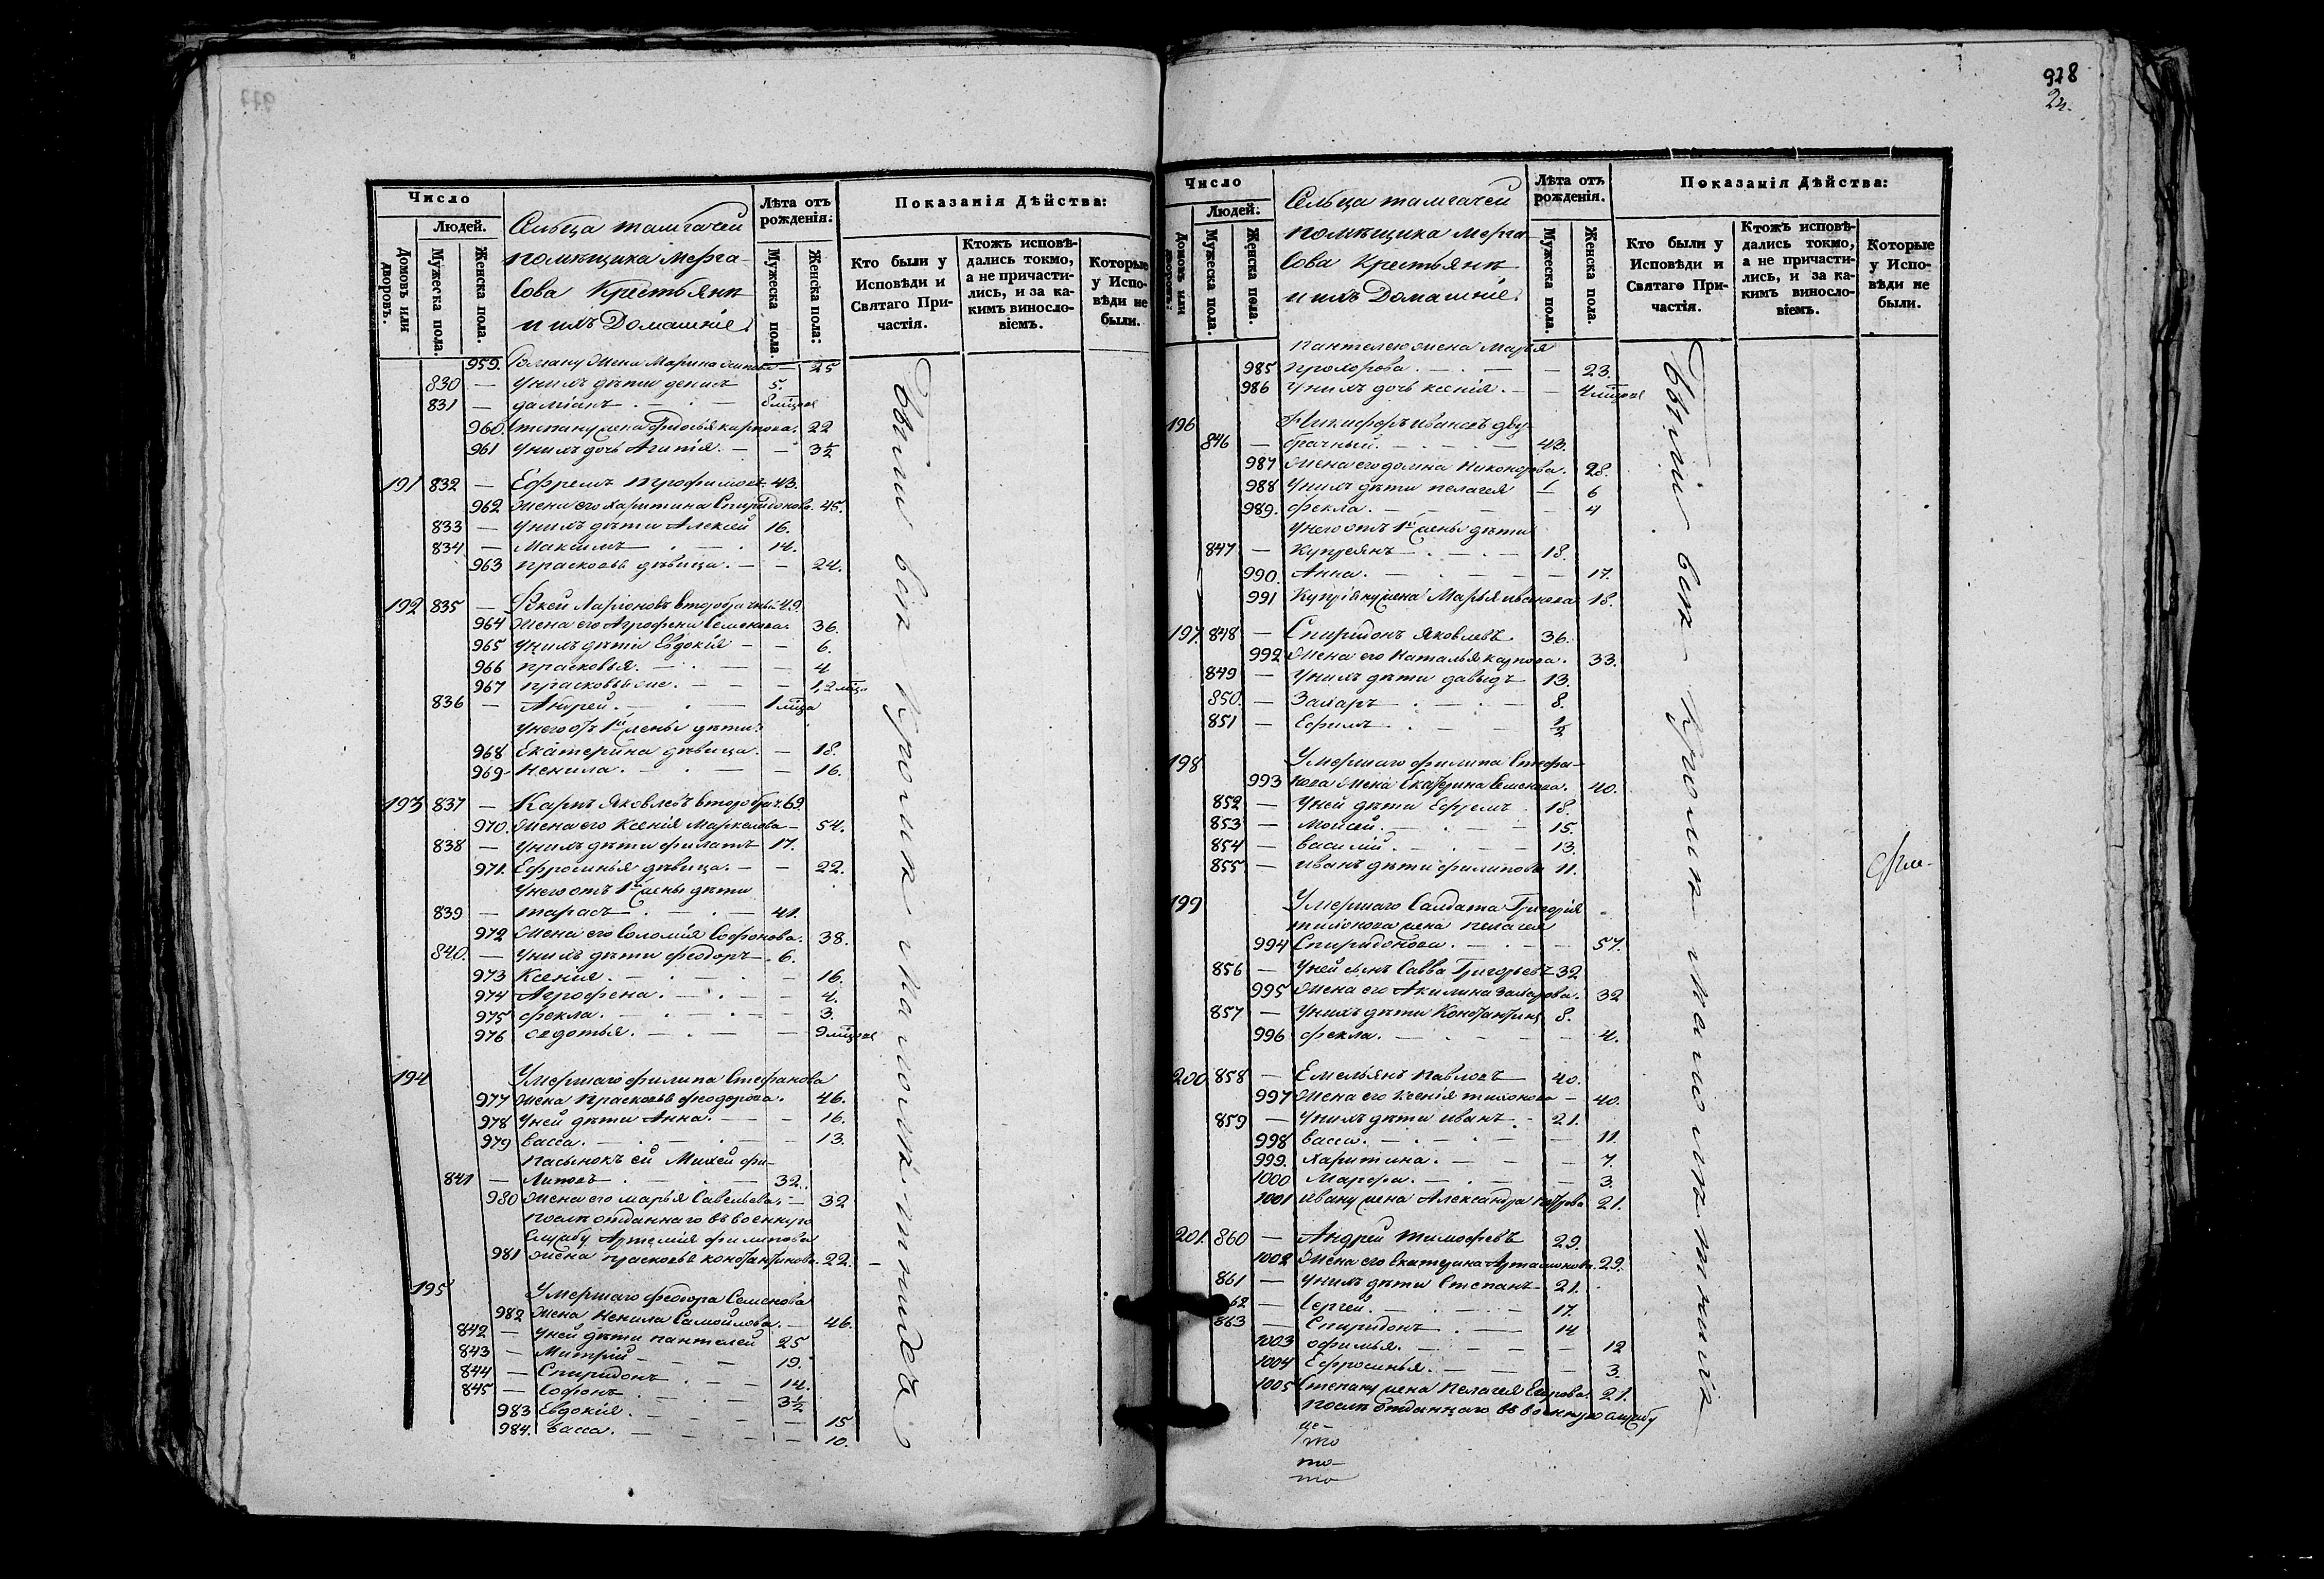 978
24.
Число
Людей.
Домовъ или дворовъ.
Мужеска пола.
Женска пола.
Сельца тамгачей
помѣщика Мерга-
сова Крестьяне
и ихъ Домашніе.
Лѣта отъ рожденія:
Мужеска пола.
Женска пола:
Показанія Дѣйства:
Кто были у Исповѣди и Святаго При-частія.
Ктожъ исповѣ-дались токмо, а не причасти-лись, и за ка-кимъ виносло-віемъ.
Которые у Испо-вѣди не были.
959. жена Марина — 25
830 — У нихъ дѣти денисъ 5.
831 — даміанъ 8 мѣсяц
960. Степану жена Федосья карпова. 22
961 У нихъ дочь Агапія. — 3½
191 832 — Ефремъ Трофимовъ 43.
962 Жена его Харитина Спиридонова. 45.
833 — У нихъ дѣти Алексѣй 16.
834 — Максимъ — 14.
963 прасковья дѣвица. — 24.
192 835 — Ларіоновъ второбрачный 49.
964 Жена его Агрофена Семенова. 36.
965 У нихъ дѣти Евдокія — 6.
966 прасковья. — 4
967 прасковья — 1, 2 мѣся
836 — Андрей. — 1 мѣся
У него отъ 1й жены дѣти:
968 Екатерина дѣвица. — 18.
969 Ненила. — 16.
193 837 — Карпъ Яковлевъ второбрач. 69
970. Жена его Ксенія Маркелова — 54.
838 — У нихъ дѣти филатъ 17.
971. Ефросинья дѣвица. — 22.
У него отъ 1й жены дѣти
839 — тарасъ — 41.
972 Жена его Соломія Софонова. 38.
840. — У нихъ дѣти феодоръ — 6.
973 Ксенія. — 16.
974 Агрофена. — 4.
975 фекла. — 3.
976 федотья. — 9 мѣсяц
194 Умершаго филипа Стефанова
977 Жена Прасковья феодорова. 46.
978 У ней дѣти Анна. — 16.
979 васса. — 13.
пасынокъ ей Михей фи-
841 — липовъ — 32.
980 Жена его марья Савельева. — 32
послѣ отданнаго въ военную
службу Артемія филипова
981 Жена прасковья константинова. 22.
195 Умершаго феодора Семенова
982 Жена Ненила Самойлова. — 46.
842 — У ней дѣти пантелей 25
843 — Митрій — 19.
844 — Спиридонъ — 14.
845 — Софонъ — 3½
983 Евдокія. — 15
984. васса. — 10.
Были всѣ кромѣ малолѣтнихъ
Число
Людей.
Домовъ или дворовъ.
Мужеска пола.
Женска пола.
Сельца тамгачей
помѣщика Мерга-
сова Крестьяне
и ихъ Домашніе.
Лѣта отъ рожденія.
Мужеска пола.
Женска пола.
Показанія Дѣйства:
Кто были у Исповѣди и Святаго При-частія.
Ктожъ исповѣ-дались токмо, а не причасти-лись, и за ка-кимъ виносло-віемъ.
Которые у Испо-вѣди не были.
пантелею жена Марья
985 прохорова. — 23.
986 У нихъ дочь ксенія. — 4 мѣсяц
196 Никифоръ ивановъ дву-
846 — брачный. — 43.
987 Жена его домна Никонорова. 28.
988 У нихъ дѣти пелагея 6
989. фекла. — 4
У него отъ 1й жены дѣти
847 — Купреянъ — 18.
990. Анна. — 17.
991 Купріяну жена Марья 18.
197. 848 — Спиридонъ Яковлевъ. 36.
992 Жена его Наталья карпова. 33.
849 — У нихъ дѣти давыдъ 13.
850. — Захаръ — 8.
851 — Ефимъ. — ½
198 Умершаго филипа Стефа-
993 нова Жена Екатерина Семенова. 40.
852 — У ней дѣти Ефремъ 18.
853 — Моисей. — 15.
854 — василій. — 13.
855 — иванъ дѣти филиповы 11.
199 Умершаго Салдата Григорія
тихонова жена пелагея
994 Спиридонова. — 57.
856 — У ней сынъ Савва Григорьевъ 32
995 Жена его Акилина Захарова. 32
857 — У нихъ дѣти Константинъ 8.
996 фекла. — 4.
200 858 — Емельянъ павловъ 40.
997 Жена его Ксенія тихонова — 40.
859 — У нихъ дѣти иванъ. — 21.
998 васса. — 11.
999. Харитина. — 7.
1000 Марфа. — 3
1001 ивану жена Александра петрова 21.
201. 860 — Андрей тимофеевъ 29.
1002 Жена его екатерина Артамонова. 29.
861 — У нихъ дѣти Степанъ — 21.
862 — Сергей. — 17.
863 — Спиридонъ — 14
1003 офимья. — 12
1004 Ефросинья. — 3.
1005 Степану жена Пелагея Егорова. 21.
послѣ отданнаго въ военную службу
Были всѣ кромѣ малолѣтнихъ